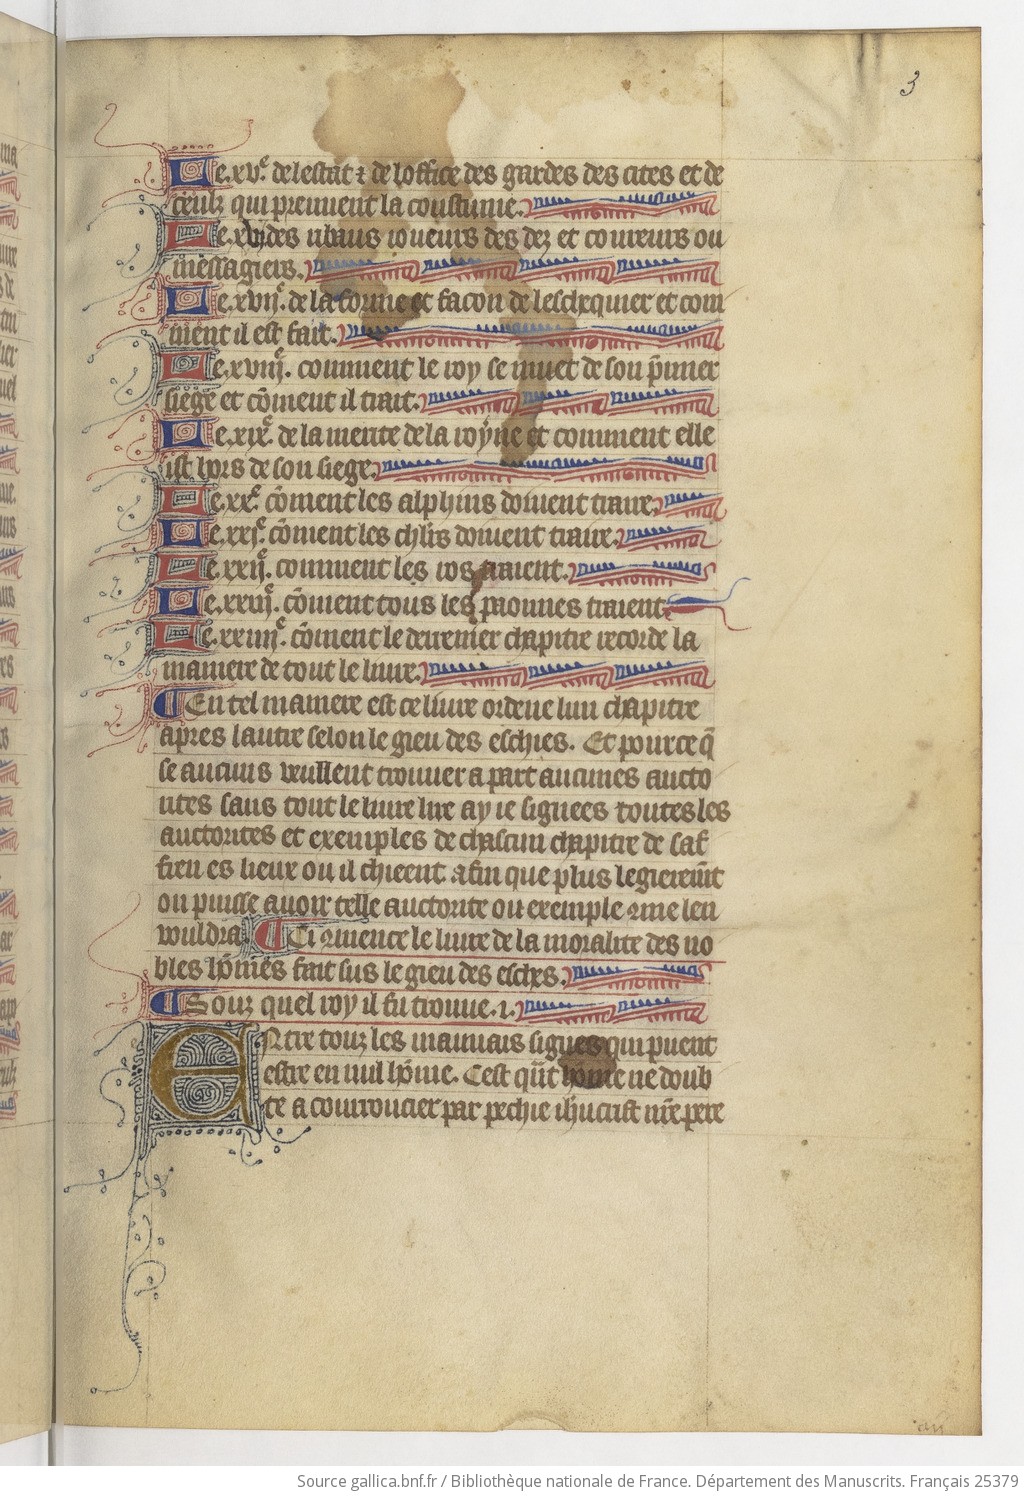 3
Le .xv.e de lestat ⁊ de loffice des gardes des cites et de
ceulz qui prennent la coustume.
Le .xvi. des ribaus ioueurs des dez et coureurs ou
messagiers.
Le .xvij.e de la forme et facon de leschequier et com
ment il est fait.
Le .xviij.e comment le roy se muet de son p̃mier
siege et cõment il trait.
Le .xix.e de la merite de la royne et comment elle
ist hors de son siege.
Le .xx.e cõment les alphins doiuent traire.
Le .xxj.e cõment les chl̃rs doiuent traire.
Le .xxij.e comment les ros traient.
Le .xxiij.e cõment tous les paonnes traient.
Le .xxiiij.e cõment le derrenier chapitre recorde la
maniere de tout le liure.
¶ En tel maniere est ce liure ordene lun chapitre
apres lautre selon le gieu des eschies. Et pource q̃
se aucuns veullent trouuer a part aucunes aucto
rites sans tout le liure lire ay ie signees toutes les
auctorites et exemples de chascun chapitre de saf
fren es lieux ou il chieent. afin que plus legierem̃t
on puisse auoir telle auctorite ou exemple ꝯme len
vouldra. ¶ Ci ꝯmence le liure de la moralite des no
bles hõmes fait sus le gieu des esches.
¶ Souz quel roy il fu trouue .i.
Entre touz les mauuais signes qui puent
estre en nul hõme. Cest qũt home ne doub
te a courroucier par pechie ihũcrist nr̃e pere
Source gallica.bnf.fr / Bibliothèque nationale de France. Département des Manuscrits. Français 25379